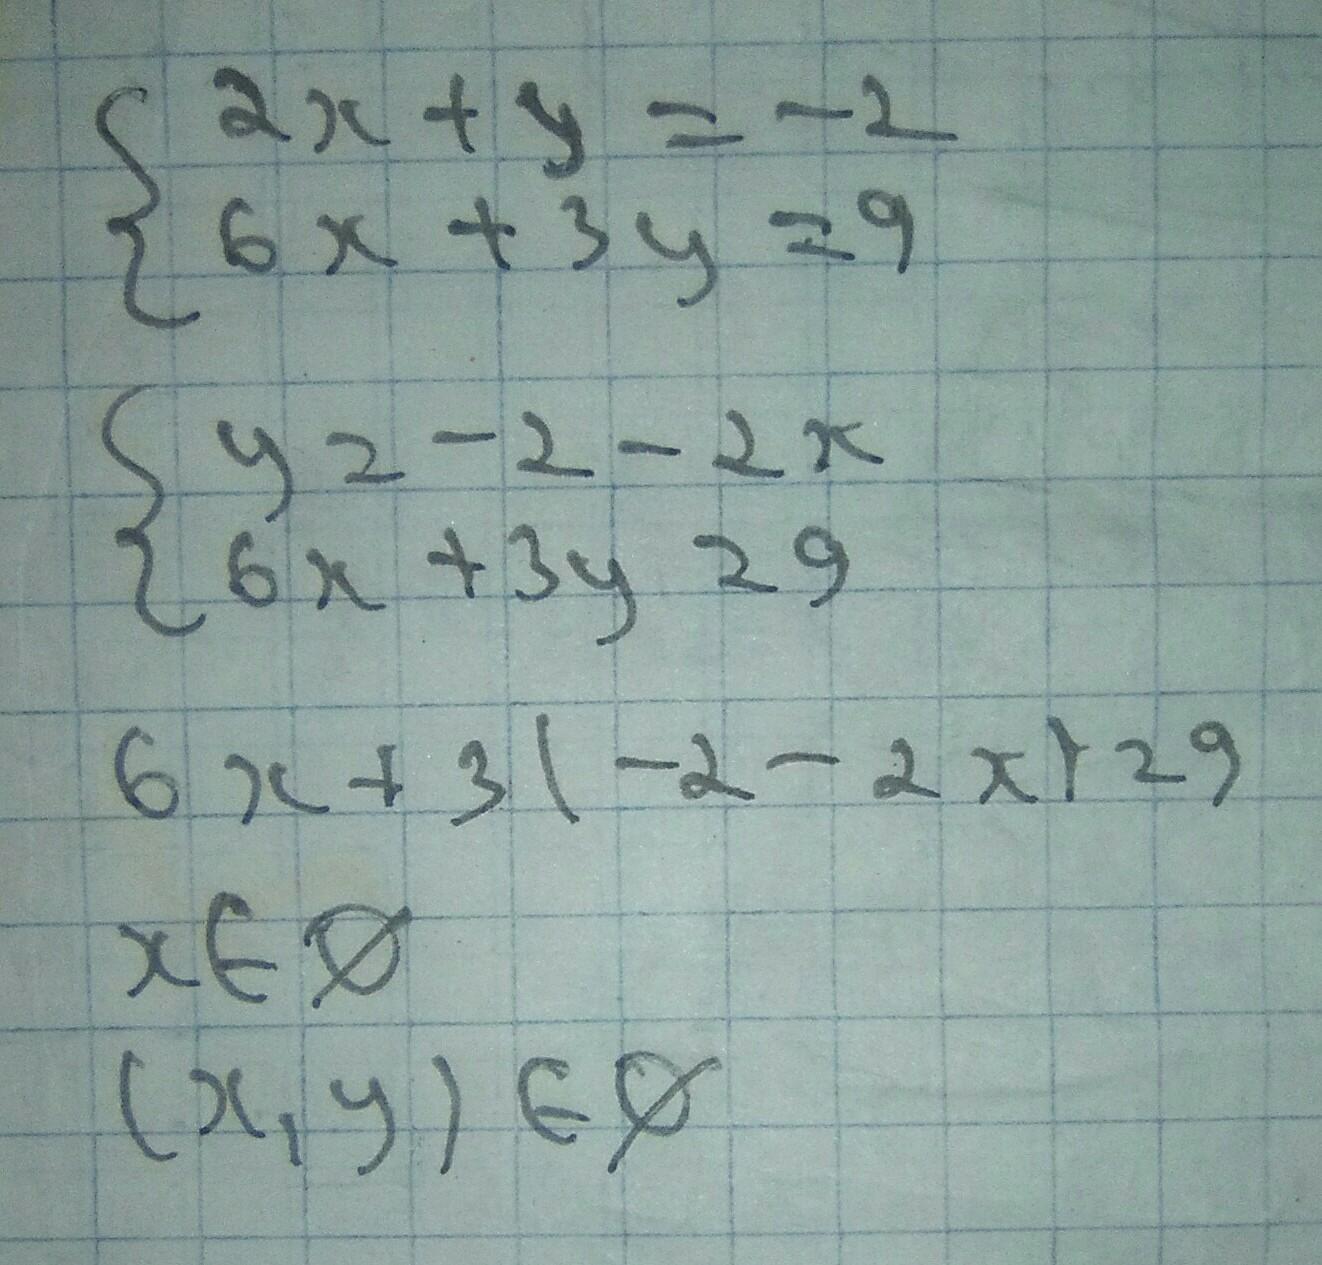 { 2x + y = -2
6x + 3y = 9
{ y = -2 - 2x
6x + 3y = 9
6x + 3(-2 - 2x) = 9
x ∈ ∅
(x, y) ∈ ∅